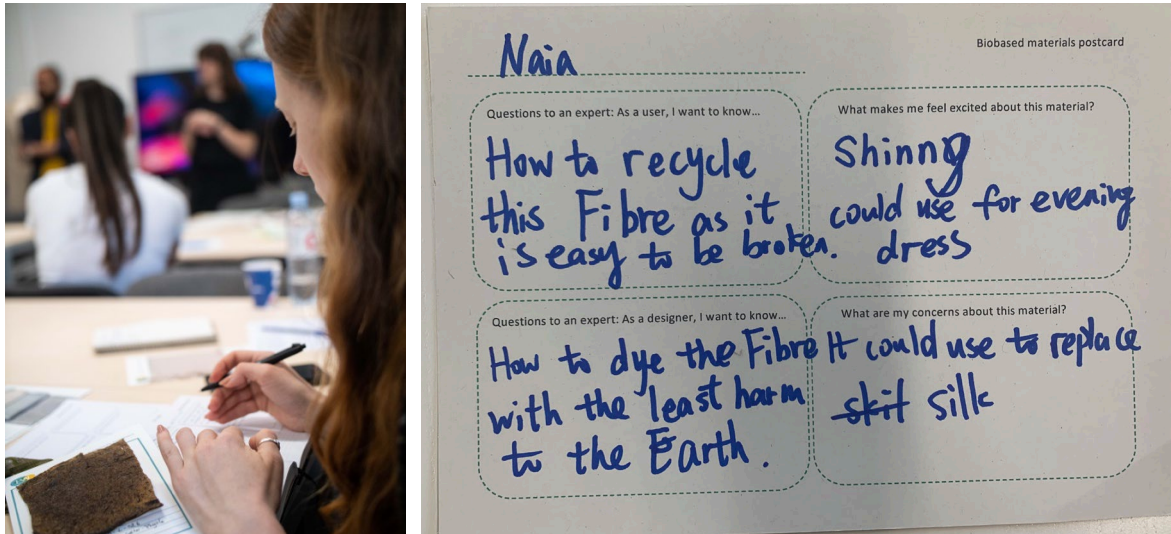 Naia
Biobased materials postcard
Questions to an expert: As a user, I want to know...
How to recycle
this Fibre as it
is easy to be broken.
What makes me feel excited about this material?
Shinng
could use for evening
dress
Questions to an expert: As a designer, I want to know...
How to dye the Fibre
with the least harm
to the Earth.
What are my concerns about this material?
It could use to replace
skit silk